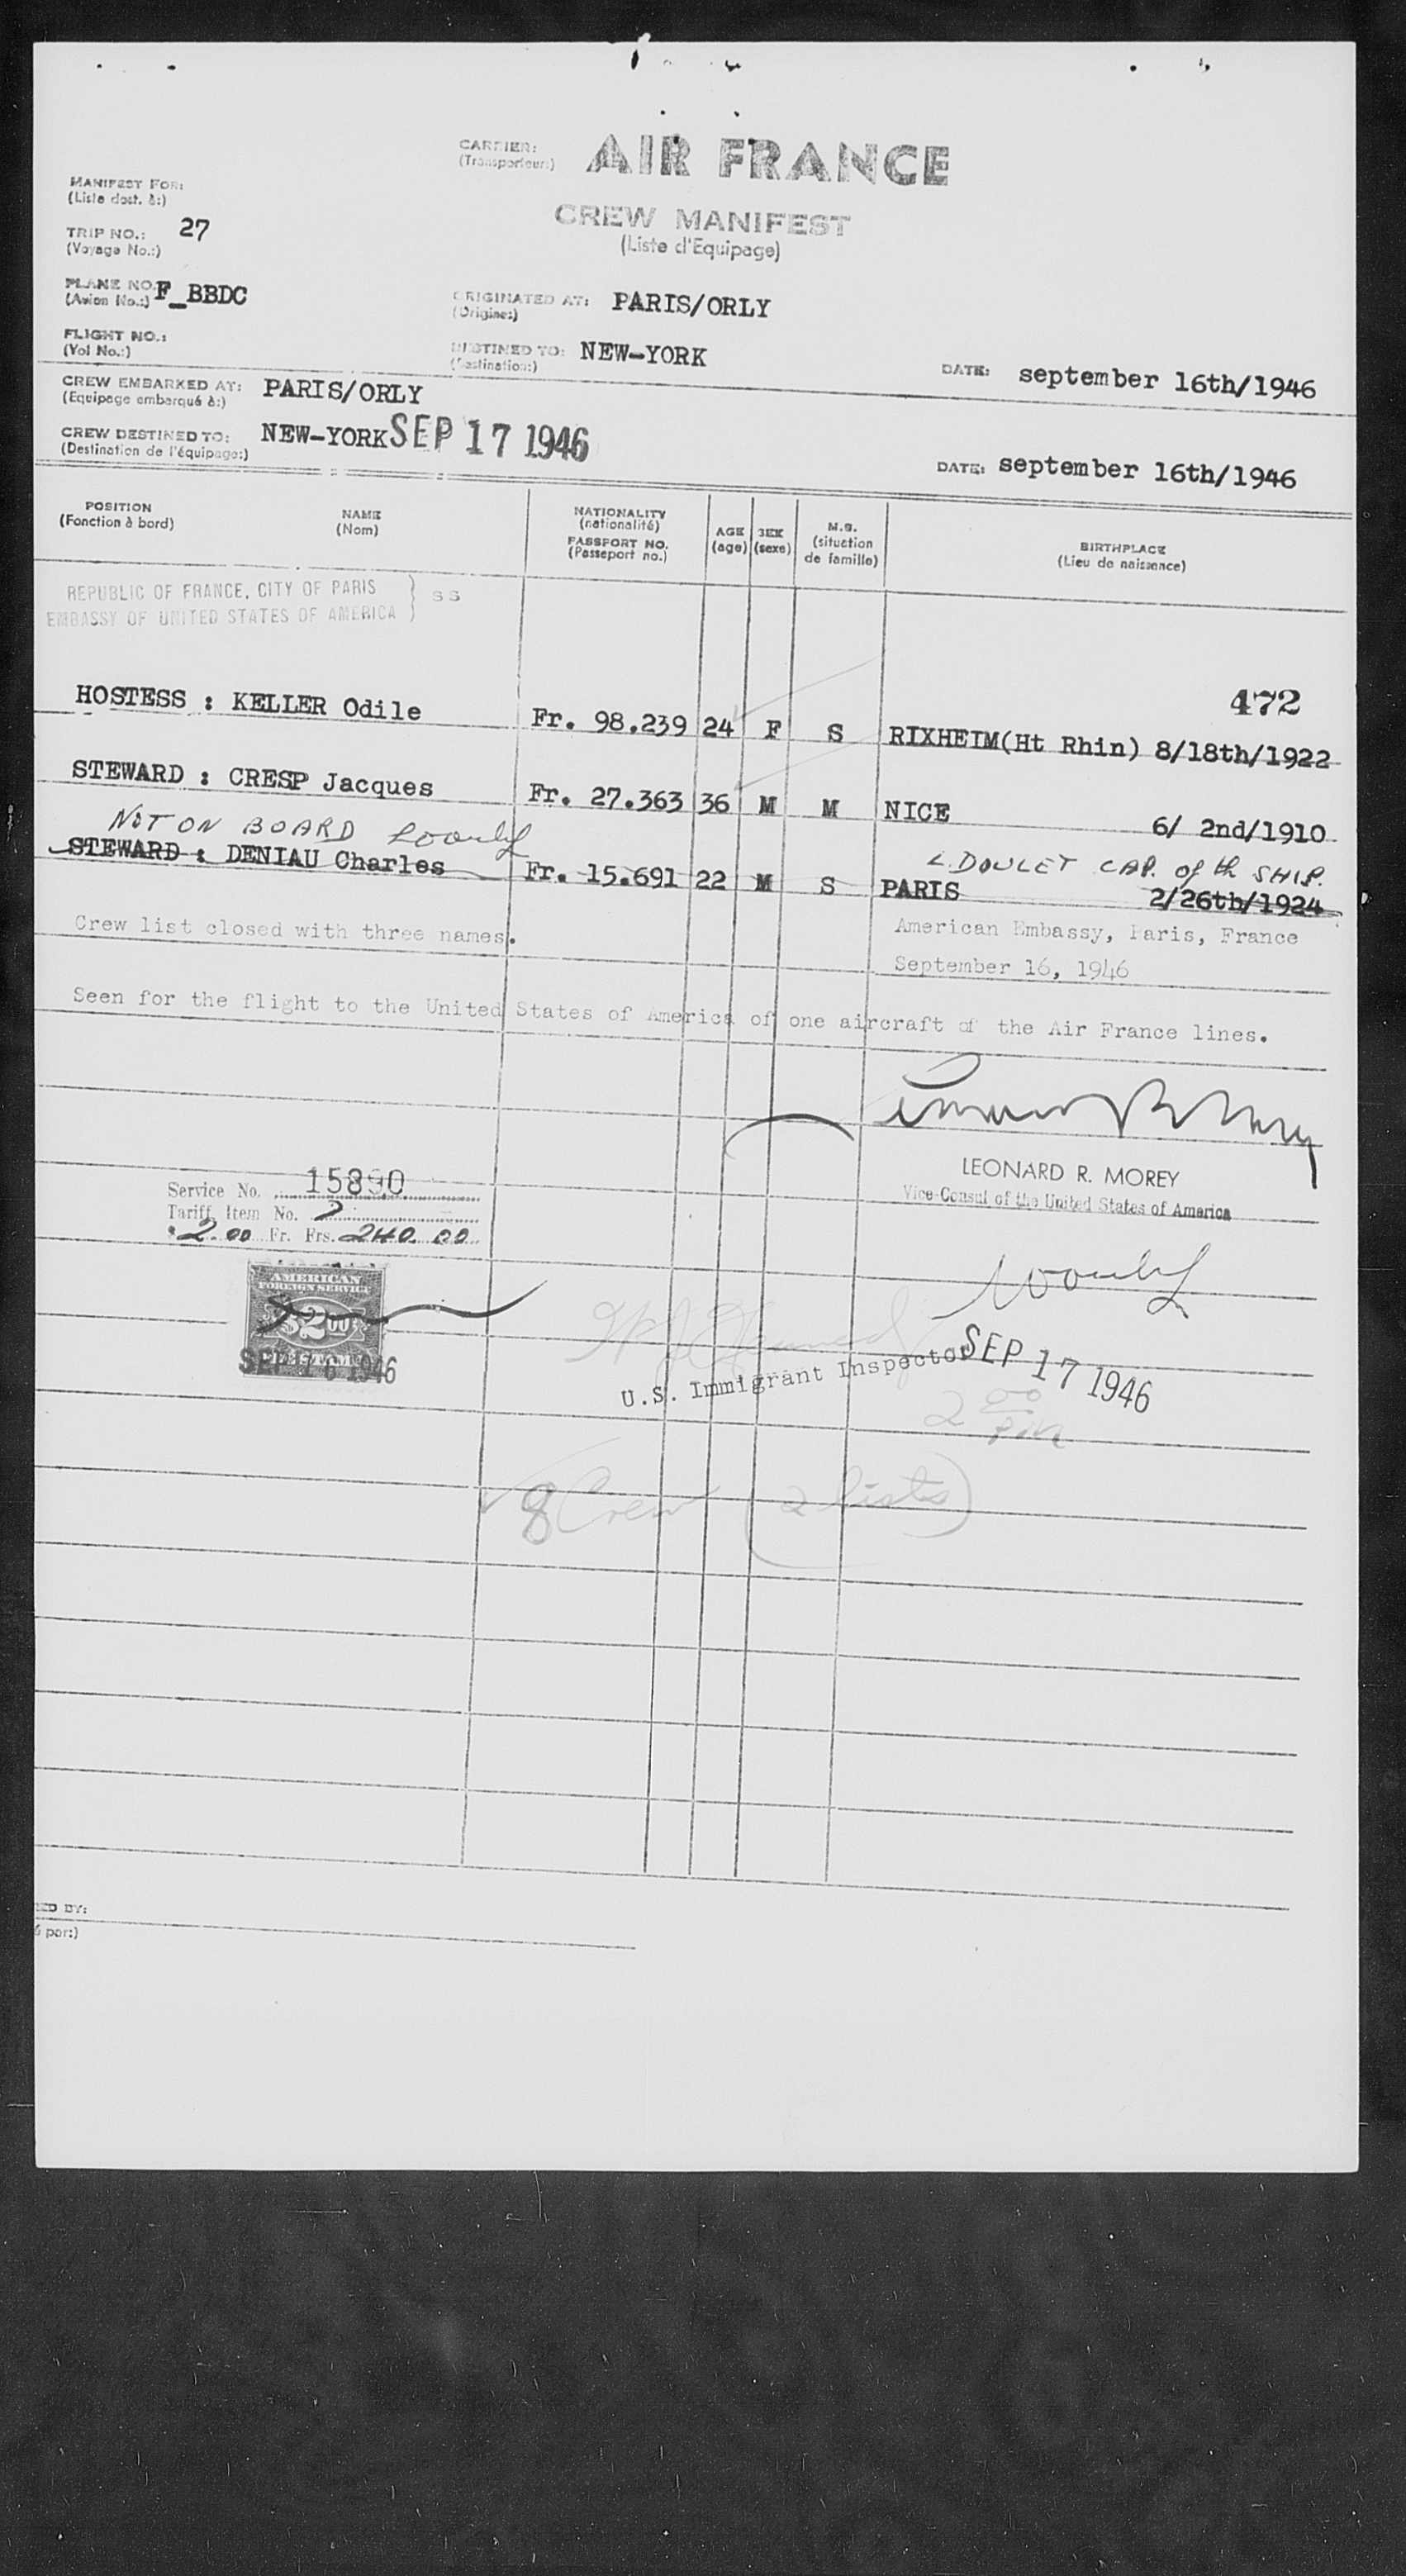 CARRIER: AIR FRANCE
(Transporteur:)
MANIFEST FOR:
(Liste dest. à:)
CREW MANIFEST
(Liste d'Equipage)
TRIP NO.: 27
(Voyage No.:)
PLANE NO. F_BBDC
(Avion No.:)
ORIGINATED AT: PARIS/ORLY
(Origine:)
FLIGHT NO.:
(Vol No.:)
DESTINED TO: NEW-YORK
(Destination:)
DATE: september 16th/1946
CREW EMBARKED AT: PARIS/ORLY
(Equipage embarqué à:)
CREW DESTINED TO: NEW-YORK SEP 17 1946
(Destination de l'équipage:)
DATE: september 16th/1946
POSITION NAME NATIONALITY AGE SEX M.S. BIRTHPLACE
(Fonction à bord) (Nom) (nationalité) (age) (sexe) (situction de famille) (Lieu de naissance)
PASSPORT NO.
(Passeport no.)
REPUBLIC OF FRANCE, CITY OF PARIS } SS
EMBASSY OF UNITED STATES OF AMERICA }
472
HOSTESS : KELLER Odile Fr. 98.239 24 F S RIXHEIM(Ht Rhin) 8/18th/1922
STEWARD : CRESP Jacques Fr. 27.363 36 M M NICE 6/ 2nd/1910
NOT ON BOARD L. DOULET CAP. of th SHIP.
STEWARD : DENIAU Charles Fr. 15.691 22 M S PARIS 2/26th/1924
Crew list closed with three names. American Embassy, Paris, France
September 16, 1946
Seen for the flight to the United States of America of one aircraft of the Air France lines.
LEONARD R. MOREY
Vice-Consul of the United States of America
Service No. 15890
Tariff Item No. 7
$2.00 Fr. Frs. 240.00
AMERICAN
FOREIGN SERVICE
$2.00
FEE STAMP
SEP 16 1946
U.S. Immigrant Inspector SEP 17 1946
2 00 PM
8 Crew (2 lists)
ED BY:
é par:)